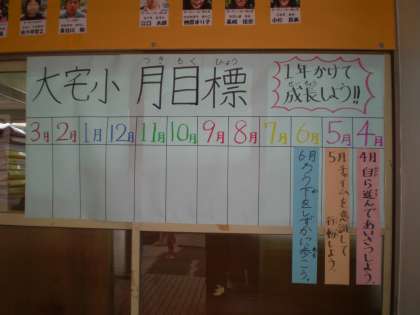 大宅小 月目標
つき もく ひょう
1年かけて
成長しよう!!
せいちょう
4月
5月
6月
7月
8月
9月
10月
11月
12月
1月
2月
3月
4月 自ら進んであいさつしよう。
5月 チャイムを意識して
行動しよう。
6月 ろう下をしずかに歩こう。